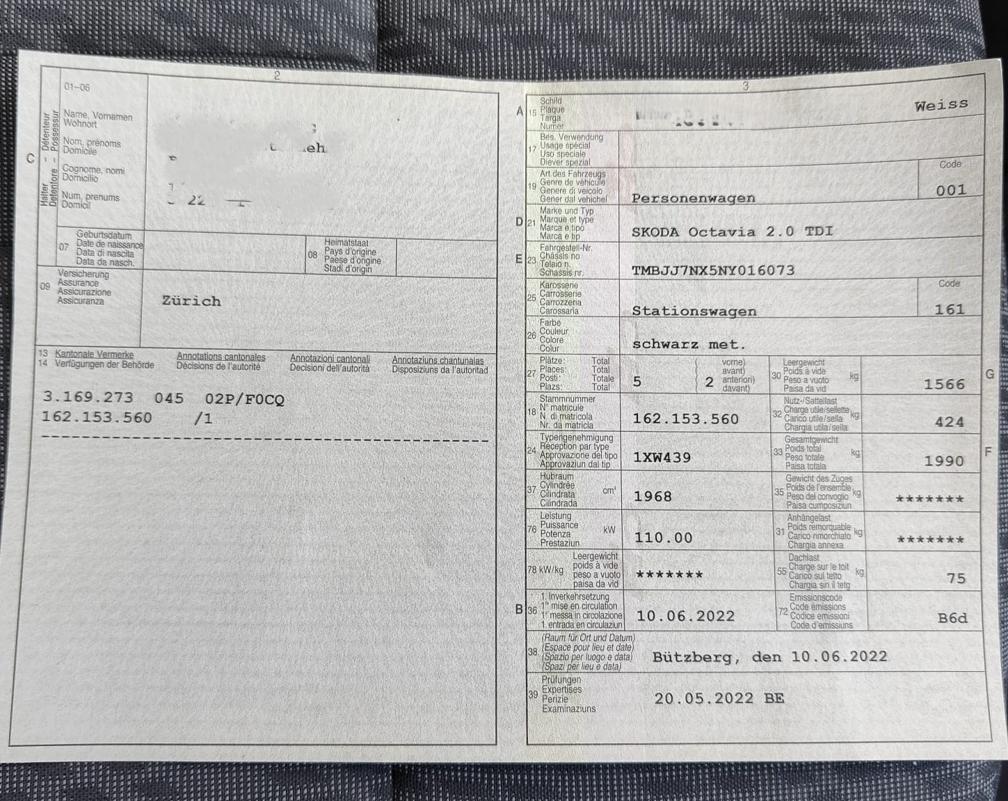 2
01–06
C
Halter - Détenteur
Detentore - Possessur
Name, Vornamen
Wohnort
Nom, prénoms
Domicile
Cognome, nomi
Domicilio
Num, prenums
Domicil
eh
22
07
Geburtsdatum
Date de naissance
Data di nascita
Data da nasch.
08
Heimatstaat
Pays d'origine
Paese d'origine
Stadi d'origin
09
Versicherung
Assurance
Assicurazione
Assicuranza
Zürich
13 Kantonale Vermerke Annotations cantonales Annotazioni cantonali Annotaziuns chantunalas
14 Verfügungen der Behörde Décisions de l'autorité Decisioni dell'autorità Disposiziuns da l'autoritad
3.169.273 045 02P/F0CQ
162.153.560 /1
3
A 15
Schild
Plaque
Targa
Numer
Weiss
17
Bes. Verwendung
Usage spécial
Uso speciale
Diever spezial
19
Art des Fahrzeugs
Genre de véhicule
Genere di veicolo
Gener dal vehichel
Personenwagen
Code
001
D 21
Marke und Typ
Marque et type
Marca e tipo
Marca e tip
SKODA Octavia 2.0 TDI
E 23
Fahrgestell-Nr.
Châssis no
Telaio n.
Schassis nr.
TMBJJ7NX5NY016073
25
Karosserie
Carrosserie
Carrozzeria
Carossaria
Stationswagen
Code
161
26
Farbe
Couleur
Colore
Colur
schwarz met.
27
Plätze: Total
Places: Total
Posti: Totale
Plazs: Total
5
2
vorne)
avant)
anteriori)
davant)
30
Leergewicht
Poids à vide
Peso a vuoto
Paisa da vid
kg
1566
G
18
Stammnummer
N° matricule
N. di matricola
Nr. da matricla
162.153.560
32
Nutz-/Sattellast
Charge utile/sellette
Carico utile/sella
Chargia utila/sella
kg
424
24
Typengenehmigung
Réception par type
Approvazione del tipo
Approvaziun dal tip
1XW439
33
Gesamtgewicht
Poids total
Peso totale
Paisa totala
kg
1990
F
37
Hubraum
Cylindrée
Cilindrata
Cilindrada
cm³
1968
35
Gewicht des Zuges
Poids de l'ensemble
Peso del convoglio
Paisa cumposiziun
kg
*******
76
Leistung
Puissance
Potenza
Prestaziun
kW
110.00
31
Anhängelast
Poids remorquable
Carico rimorchiato
Chargia annexa
kg
*******
78 kW/kg
Leergewicht
poids à vide
peso a vuoto
paisa da vid
*******
55
Dachlast
Charge sur le toit
Carico sul tetto
Chargia sin il tetg
kg
75
B 36
1. Inverkehrsetzung
1re mise en circulation
1a messa in circolazione
1. entrada en circulaziun
10.06.2022
72
Emissionscode
Code émissions
Codice emissioni
Code d'emissiuns
B6d
38
(Raum für Ort und Datum)
(Espace pour lieu et date)
(Spazio per luogo e data)
(Spazi per lieu e data)
Bützberg, den 10.06.2022
39
Prüfungen
Expertises
Perizie
Examinaziuns
20.05.2022 BE